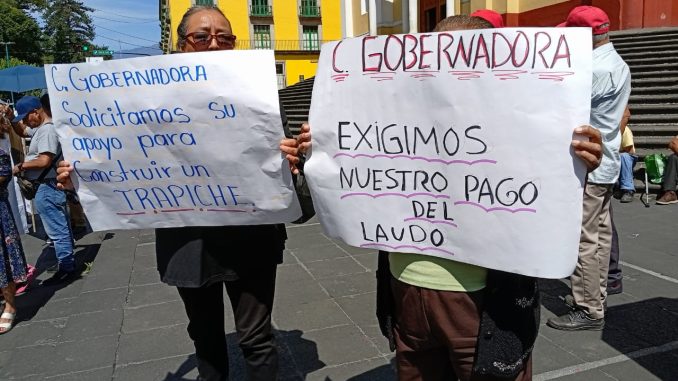 C. GOBERNADORA
Solicitamos su
apoyo para
Construir un
TRAPICHE.
C. GOBERNADORA
EXIGIMOS
NUESTRO PAGO
DEL
LAUDO